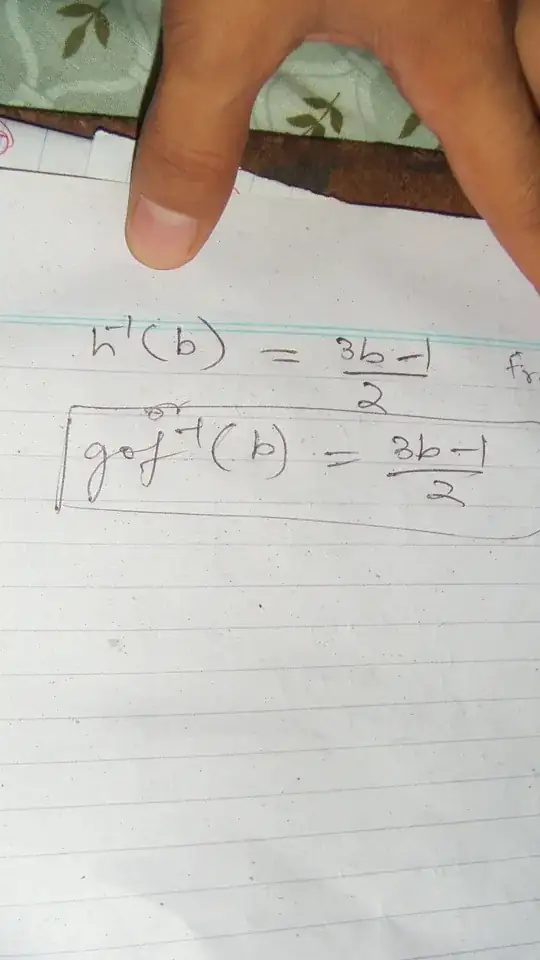 h⁻¹(b) = 3b-1/2
or
gof⁻¹(b) = 3b-1/2